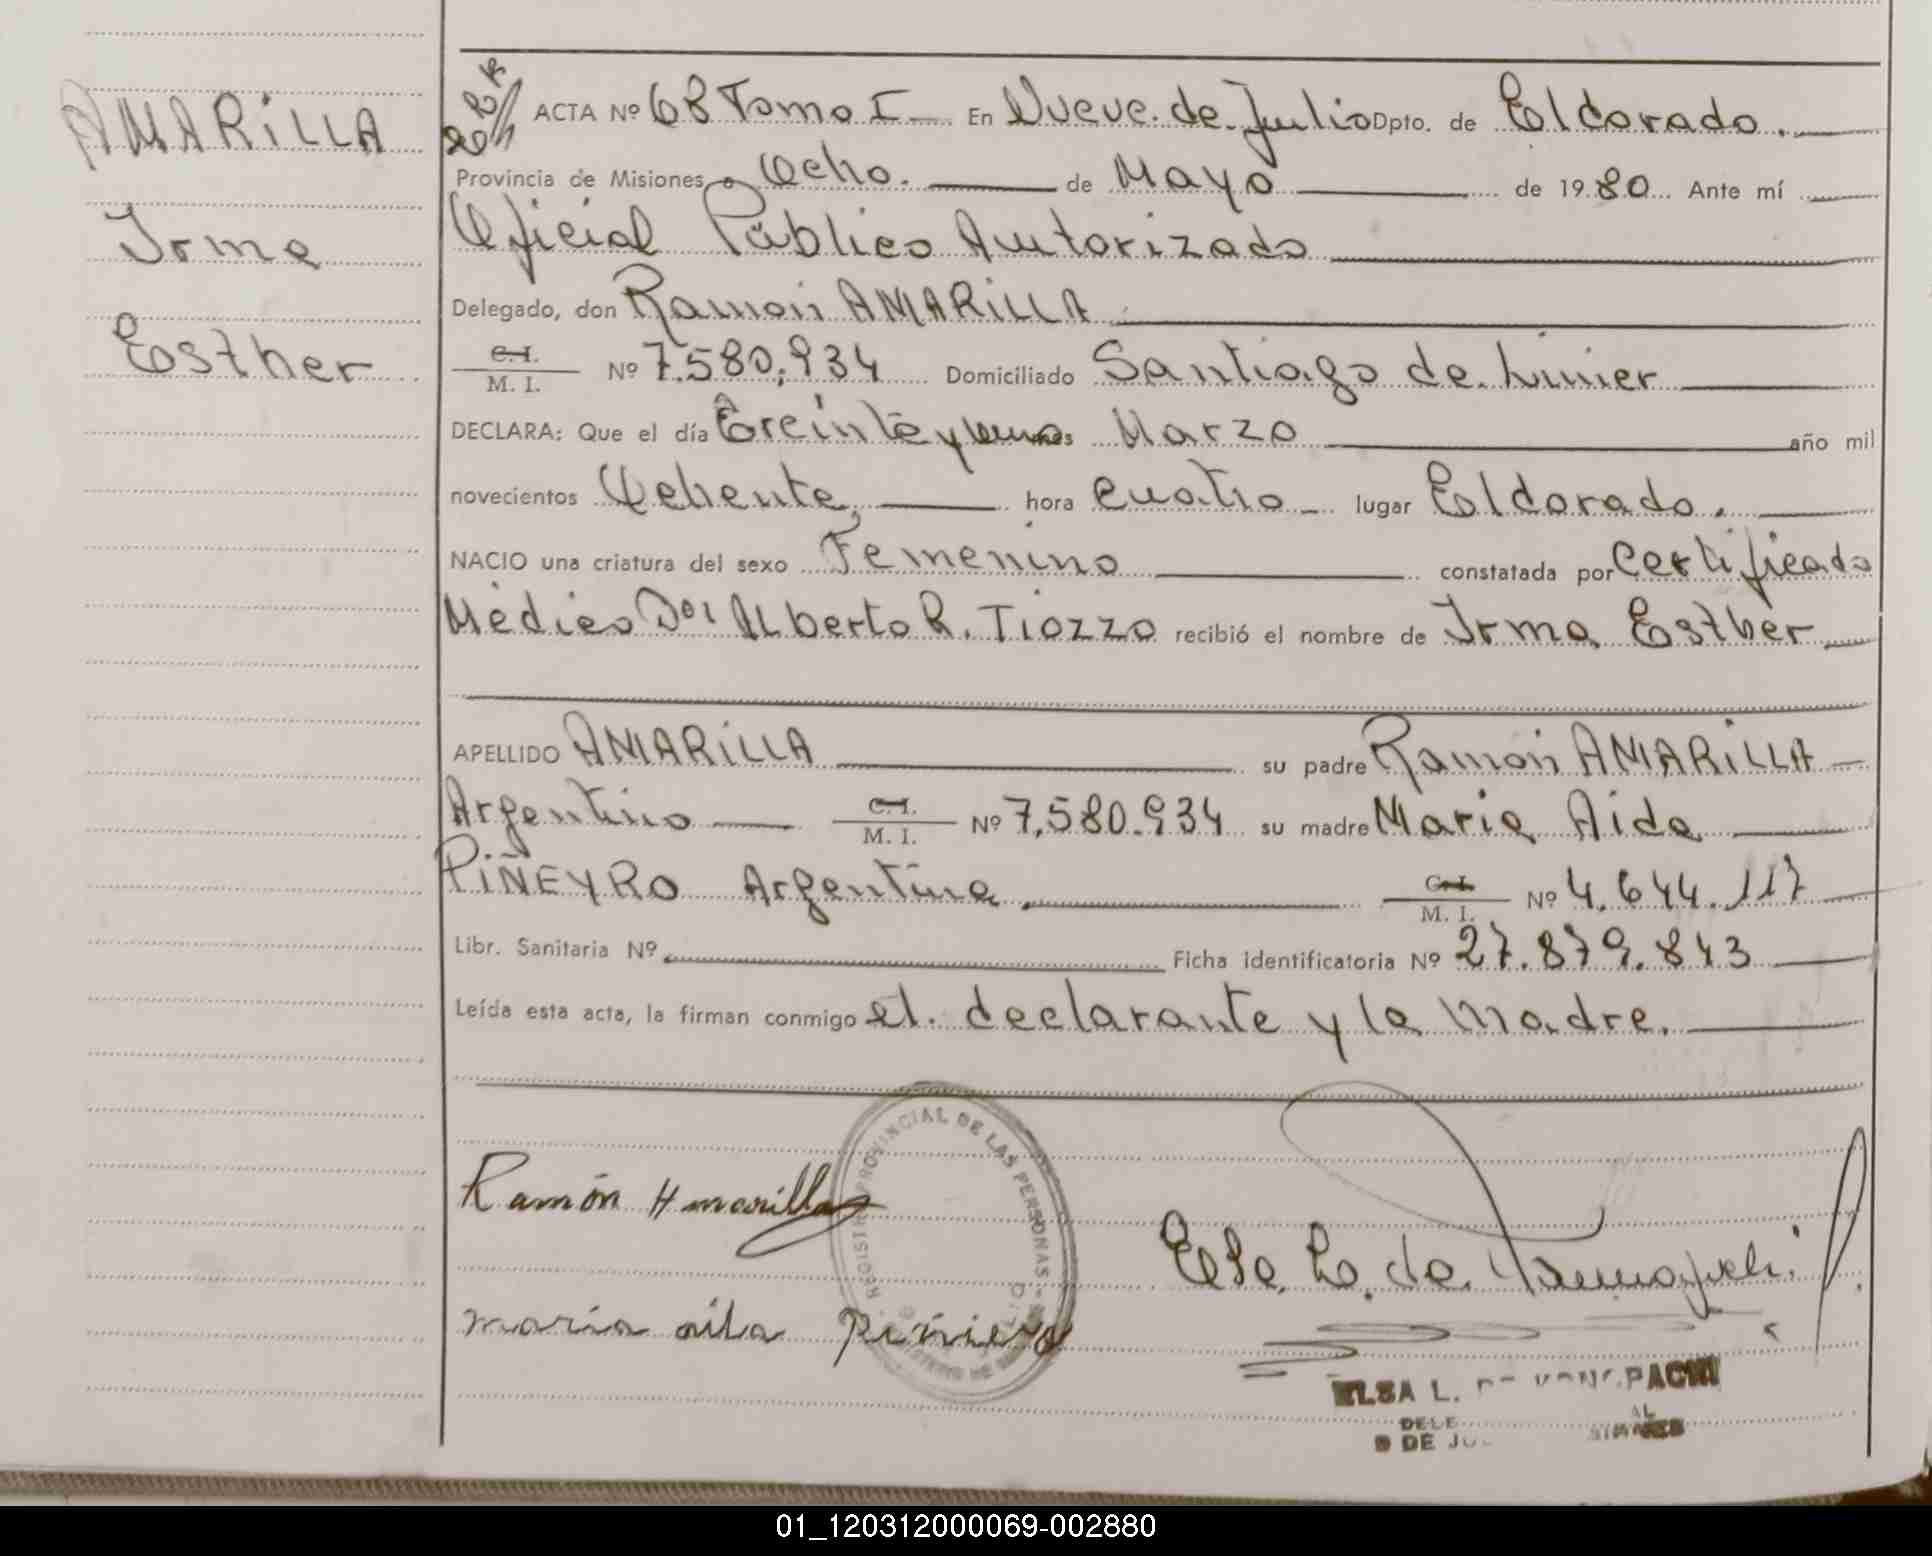 AMARiLLA
Irma
Esther
ACTA Nº 68 Tomo I En Nueve de Julio Dpto. de Eldorado.
Provincia de Misiones a Ocho. de Mayo de 19 80 Ante mí
Oficial Público Autorizado
Delegado, don Ramón AMARiLLA
C. I.
M. I. Nº 7.580.934 Domiciliado Santiago de Linier
DECLARA: Que el día Treinta y uno mes Marzo año mil
novecientos Ochenta, hora Cuatro lugar Eldorado.
NACIO una criatura del sexo Femenino constatada por Certificado
Médico Dor Alberto R. Tiozzo recibió el nombre de Irma Esther
APELLIDO AMARiLLA su padre Ramón AMARiLLA
Argentino C. I.
M. I. Nº 7.580.934 su madre Maria Aida
PIÑEYRO Argentina. C. I.
M. I. Nº 4.644.117
Libr. Sanitaria Nº Ficha identificatoria Nº 27.879.843
Leída esta acta, la firman conmigo el declarante y la Madre.
REGISTRO PROVINCIAL DE LAS PERSONAS
Ramón Amarilla
maria aida Piñiero
Elsa L. de
ELSA L. DE
9 DE JUL
01_120312000069-002880